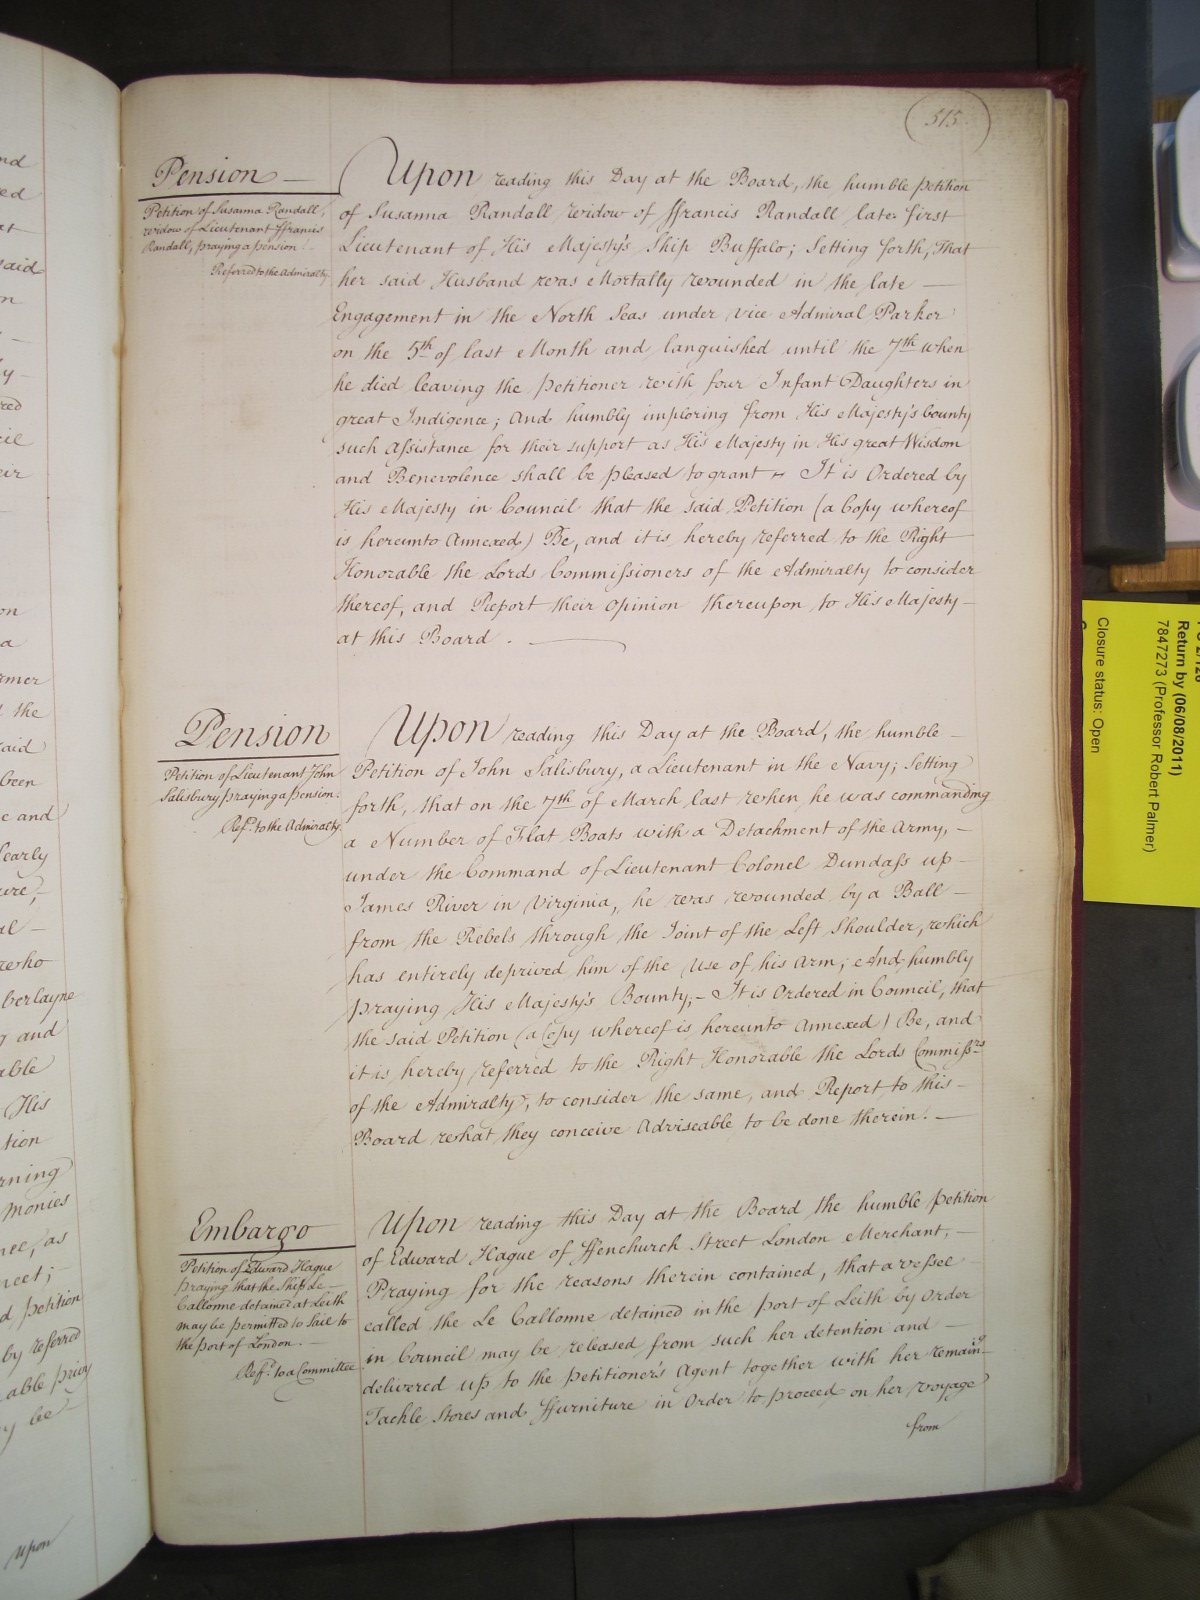 515.
Pension
Petition of Susanna Randall,
widow of Lieutenant ffrancis
Randall, praying a pension.
Referred to the Admiralty.
Upon reading this Day at the Board, the humble petition
of Susanna Randall widow of ffrancis Randall late first
Lieutenant of His Majesty's Ship Buffalo; Setting forth, That
her said Husband was Mortally wounded in the late —
Engagement in the North Seas under Vice Admiral Parker
on the 5th of last Month and languished until the 7th when
he died leaving the petitioner with four Infant Daughters in
great Indigence; And humbly imploring from His Majesty's bounty
such Assistance for their support as His Majesty in His great Wisdom
and Benevolence shall be pleased to grant — It is Ordered by
His Majesty in Council that the said Petition (a Copy whereof
is hereunto Annexed) Be, and it is hereby referred to the Right
Honorable the Lords Commissioners of the Admiralty to consider
thereof, and Report their opinion thereupon to His Majesty —
at this Board.
Pension
Petition of Lieutenant John
Salisbury praying a pension.
Ref.d to the Admiralty.
Upon reading this Day at the Board, the humble —
Petition of John Salisbury, a Lieutenant in the Navy; Setting
forth, that on the 7th of March last when he was commanding
a Number of Flat Boats with a Detachment of the Army, —
under the Command of Lieutenant Colonel Dundass up —
James River in Virginia, he was wounded by a Ball —
from the Rebels through the Joint of the Left Shoulder, which
has entirely deprived him of the Use of his Arm; And humbly
praying His Majesty's Bounty; — It is Ordered in Council, that
the said Petition (a Copy whereof is hereunto Annexed) Be, and
it is hereby referred to the Right Honorable the Lords Commissrs
of the Admiralty, to consider the same, and Report to this —
Board what they conceive Adviseable to be done therein. —
Embargo
Petition of Edward Hague
praying that the Ship Le
Callonne detained at Leith
may be permitted to sail to
the port of London. —
Ref.d to a Committee
Upon reading this Day at the Board the humble petition
of Edward Hague of ffenchurch Street London Merchant, —
Praying for the reasons therein contained, that a vessel
called the Le Callonne detained in the port of Leith by Order
in Council may be released from such her detention and —
delivered up to the petitioner's Agent together with her remaing
Tackle Stores and ffurniture in Order to proceed on her voyage
from
Return by (06/08/2011)
7847273 (Professor Robert Palmer)
Closure status: Open
nd
said
on
red
cil
eir
on
a
the
said
been
e and
who
berlayne
g and
able
His
tion
rning
monies
as
d petition
by referred
able privy
y be
upon